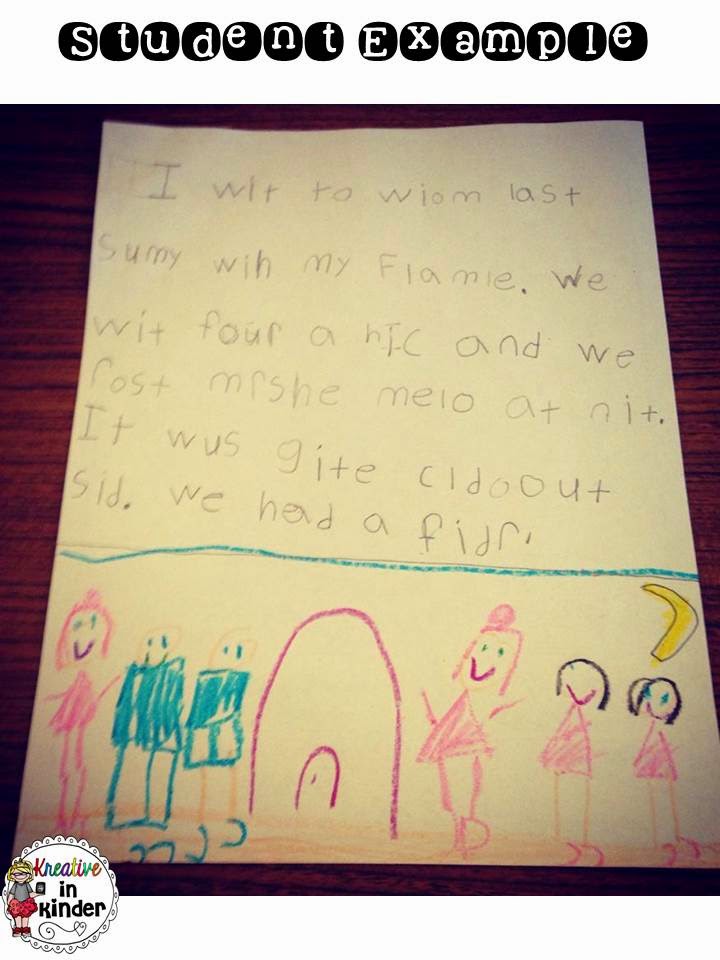 Student Example
I wit to wiom last
sumy wih my Flamie. We
wit four a hIC and we
rost mrshe melo at nit.
It wus gite cldoout
sid. we had a fidr.
Kreative
in
Kinder